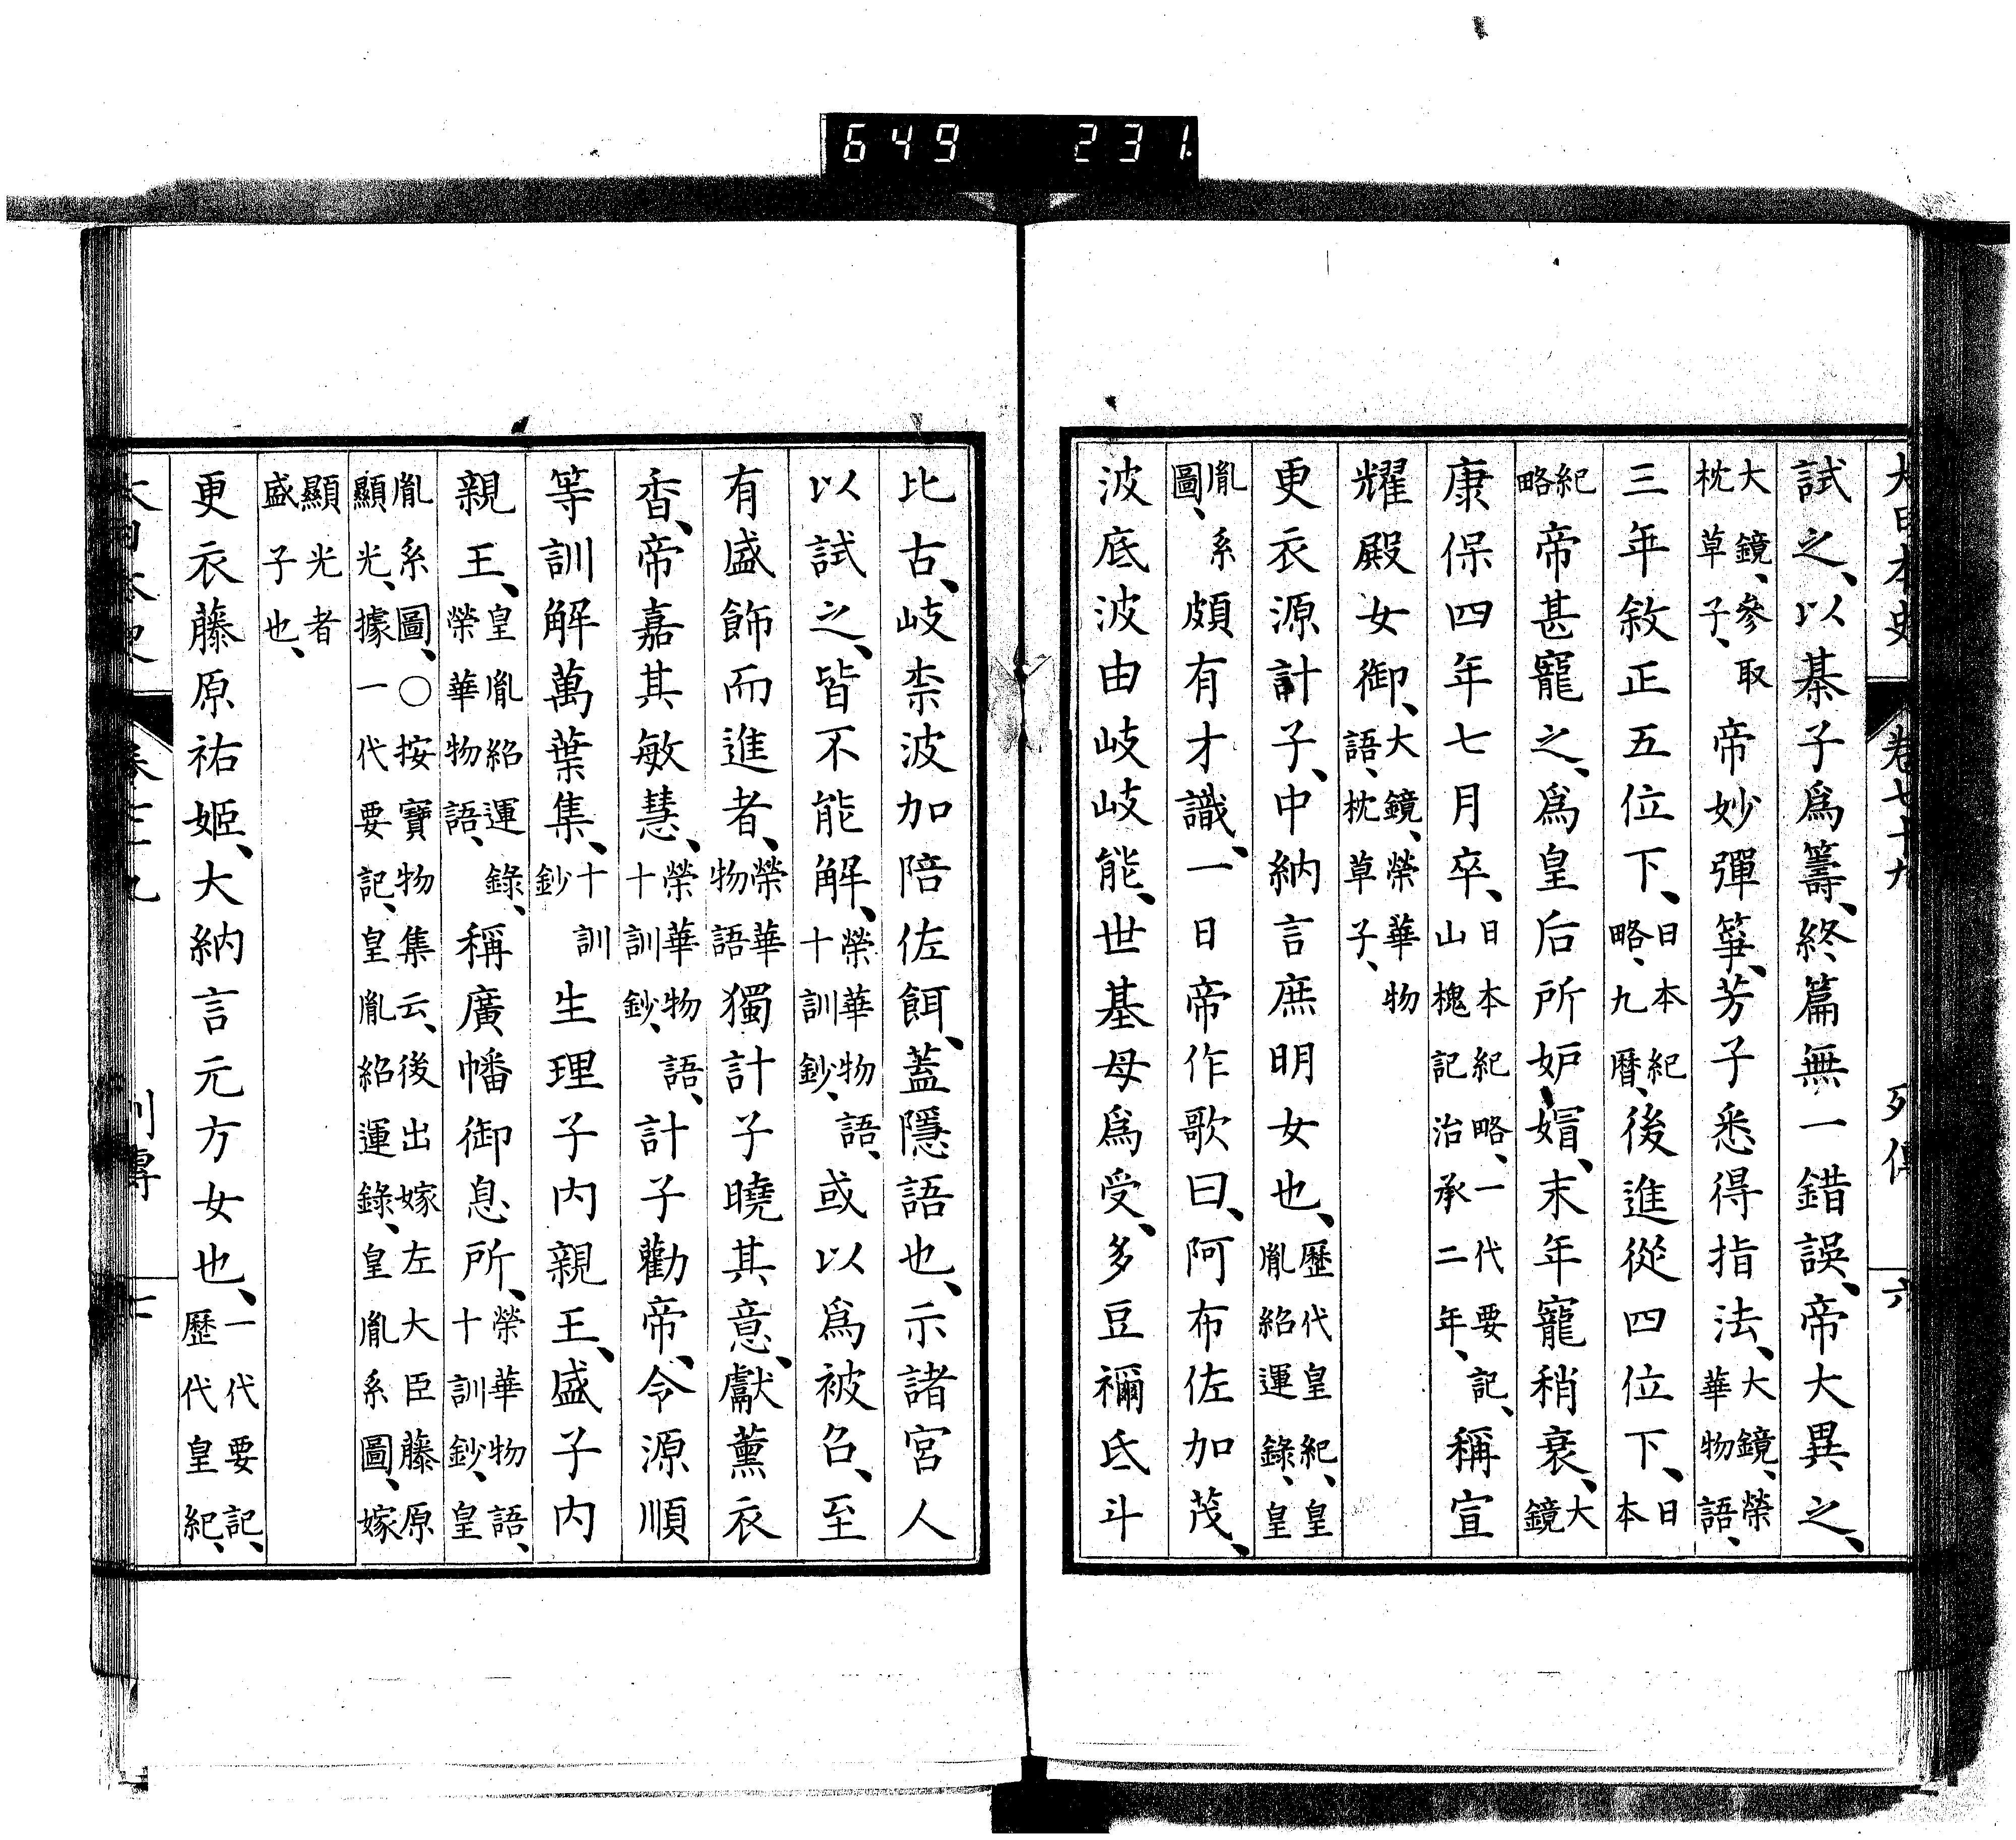 649 231
大日本史 卷七十九 列傳 六
試之、以棊子爲籌、終篇無一錯誤、帝大異之、
大鏡、參取枕草子、帝妙彈箏、芳子悉得指法、大鏡、榮華物語、
三年敘正五位下、日本紀略、九曆、後進從四位下、日本
紀略帝甚寵之、爲皇后所妒媢、末年寵稍衰、大鏡
康保四年七月卒、日本紀略、一代要記、山槐記治承二年、稱宣
耀殿女御、大鏡、榮華物語、枕草子、
更衣源計子、中納言庶明女也、歷代皇紀、皇胤紹運錄、皇
胤系圖、頗有才識、一日帝作歌曰、阿布佐加茂、
波底波由岐岐能、世基母爲受、多豆禰氐斗
比古、岐柰波加陪佐餌、蓋隱語也、示諸宮人
以試之、皆不能解、榮華物語、十訓鈔、或以爲被召、至
有盛飾而進者、榮華物語獨計子曉其意、獻薰衣
香、帝嘉其敏慧、榮華物語、十訓鈔、計子勸帝、令源順
等訓解萬葉集、十訓鈔生理子內親王、盛子內
親王、皇胤紹運錄、榮華物語、稱廣幡御息所、榮華物語、十訓鈔、皇
胤系圖、○按寶物集云、後出嫁左大臣藤原顯光、據一代要記、皇胤紹運錄、皇胤系圖、嫁
顯光者盛子也、
更衣藤原祐姬、大納言元方女也、一代要記、歷代皇紀、
大日本史 卷七十九 列傳 七